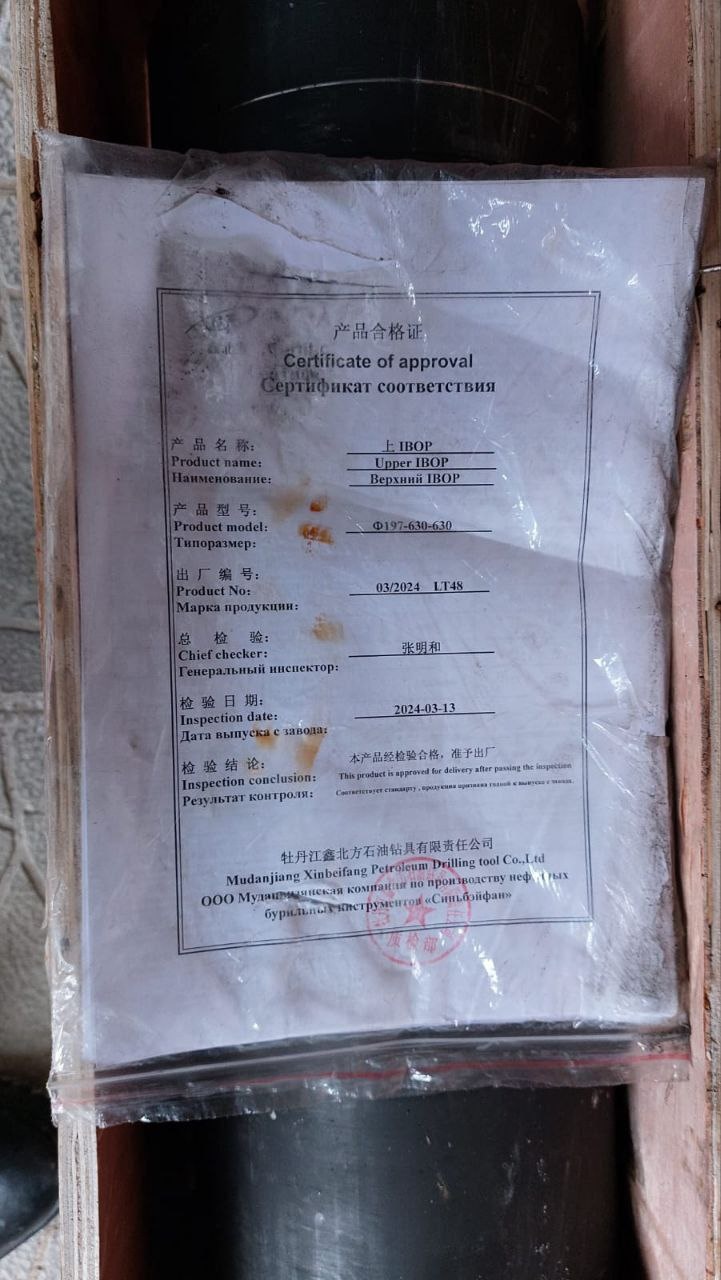 产品合格证
Certificate of approval
Сертификат соответствия
产 品 名 称： 上 IBOP
Product name： Upper IBOP
Наименование： Верхний IBOP
产 品 型 号：
Product model： Φ197-630-630
Типоразмер：
出 厂 编 号：
Product No： 03/2024 LT48
Марка продукции：
总 检 验：
Chief checker： 张明和
Генеральный инспектор：
检 验 日 期：
Inspection date： 2024-03-13
Дата выпуска с завода：
检 验 结 论： 本产品经检验合格，准予出厂
Inspection conclusion： This product is approved for delivery after passing the inspection
Результат контроля： Соответствует стандарту , продукция признана годной к выпуску с завода.
牡丹江鑫北方石油钻具有限责任公司
Mudanjiang Xinbeifang Petroleum Drilling tool Co.,Ltd
ООО Муданцзянская компания по производству нефтяных
бурильных инструментов «Синьбэйфан»
质检部